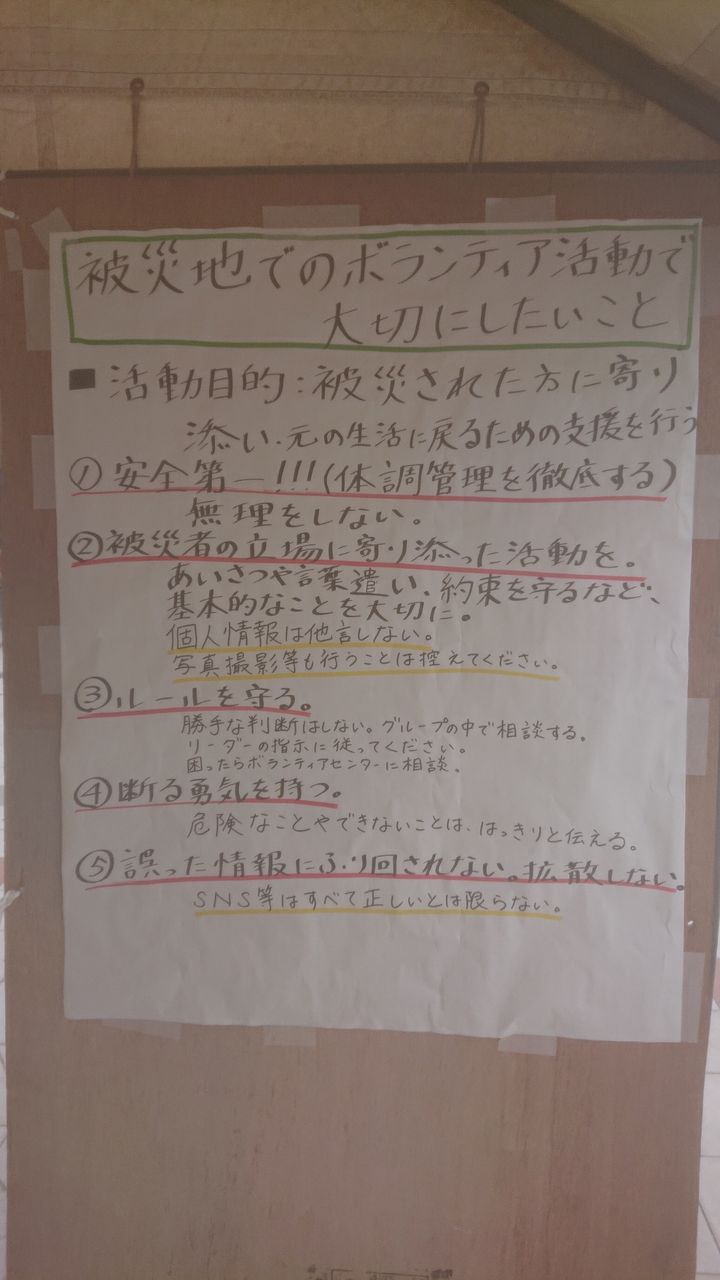 被災地でのボランティア活動で
大切にしたいこと
■ 活動目的：被災された方に寄り
添い、元の生活に戻るための支援を行う
① 安全第一!!!(体調管理を徹底する)
無理をしない。
②被災者の立場に寄り添った活動を。
あいさつや言葉遣い、約束を守るなど、
基本的なことを大切に。
個人情報は他言しない。
写真撮影等も行うことは控えてください。
③ルールを守る。
勝手な判断はしない。グループの中で相談する。
リーダーの指示に従ってください。
困ったらボランティアセンターに相談。
④断る勇気を持つ。
危険なことやできないことは、はっきりと伝える。
⑤誤った情報にふり回されない。拡散しない。
SNS等はすべて正しいとは限らない。